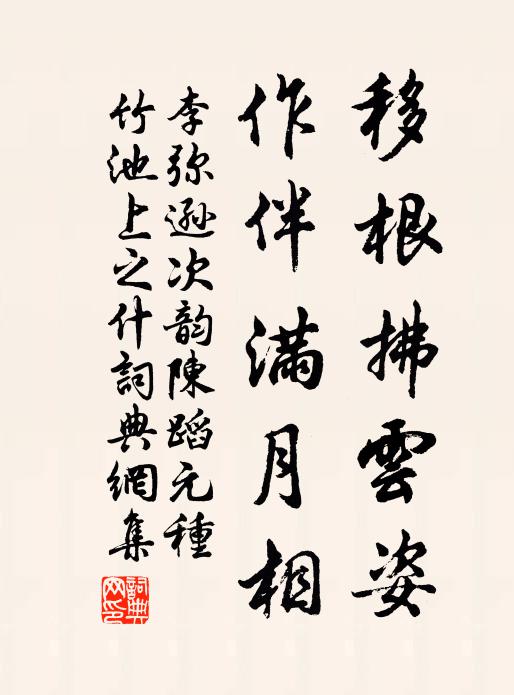 移根拂雲姿
作伴满月相
李弥遜次韵陳蹈元種
竹池上之什詞典網集
詞典網印